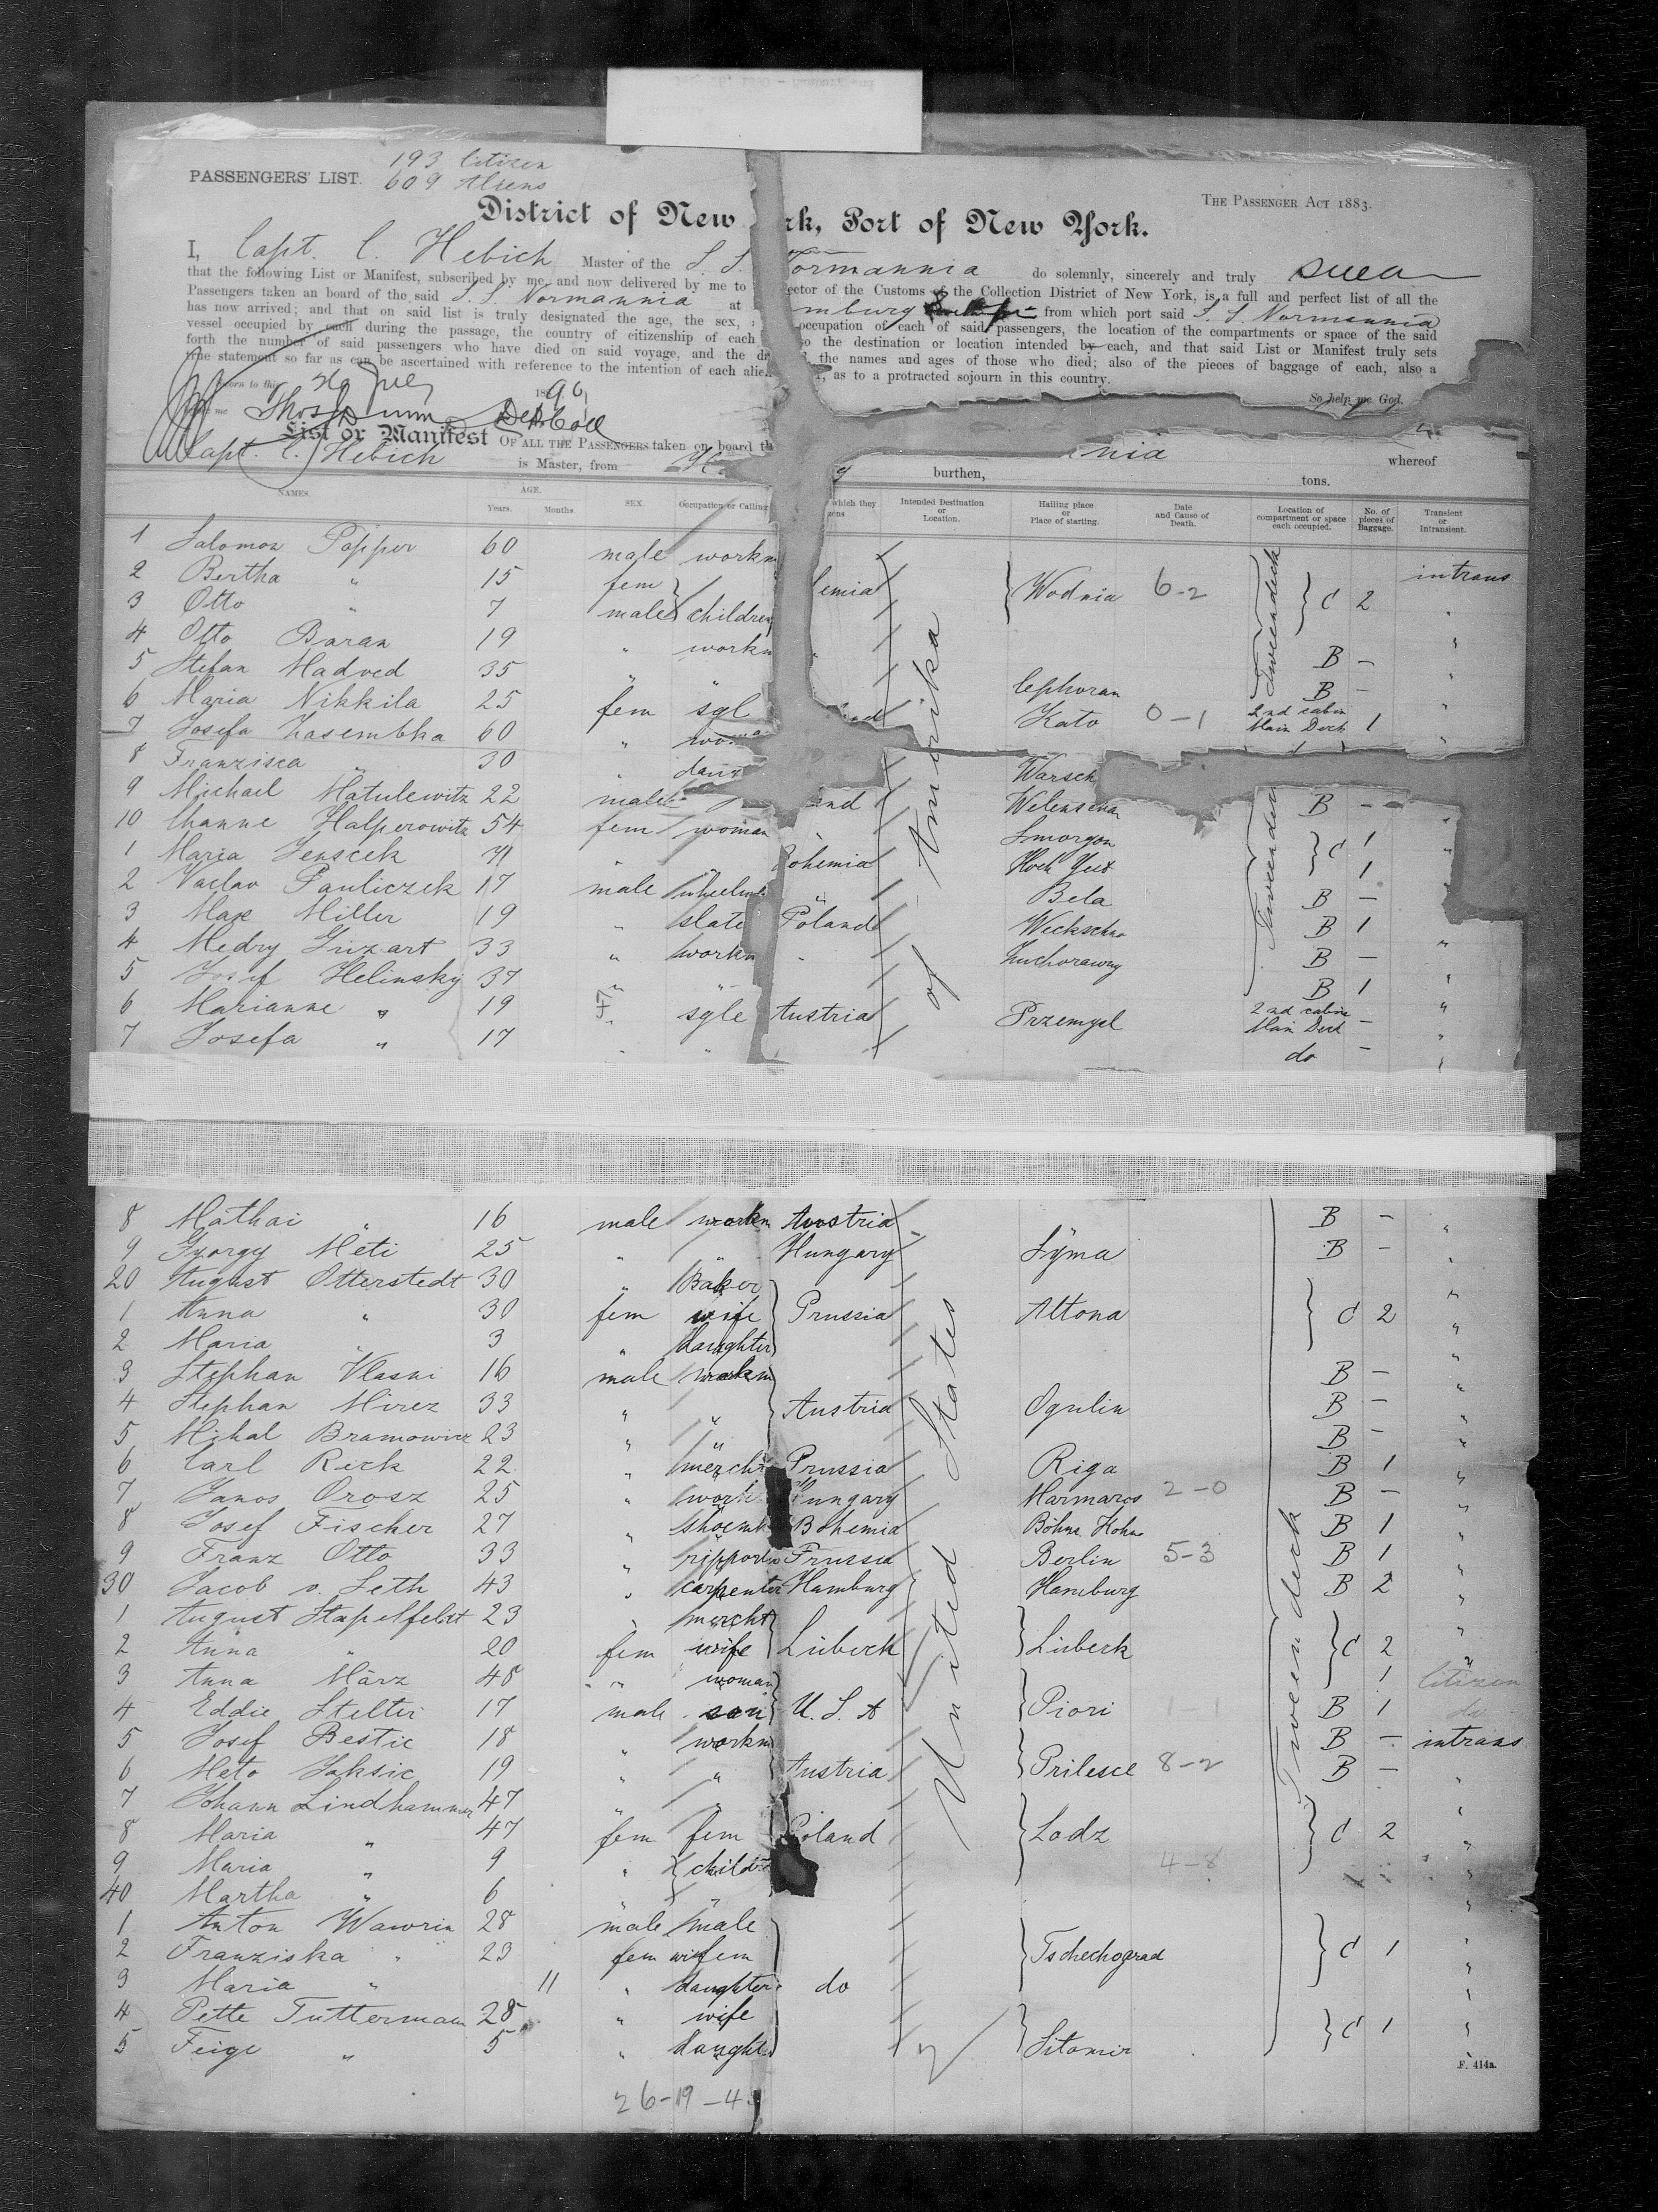 193 Citizen
PASSENGERS' LIST. 609 Aliens
THE PASSENGER ACT 1883.
District of New rk, Port of New York.
I, Capt. C. Hebich Master of the S. S. Normannia do solemnly, sincerely and truly swear
that the following List or Manifest, subscribed by me, and now delivered by me to ector of the Customs of the Collection District of New York, is a full and perfect list of all the
Passengers taken an board of the said S. S. Normannia at mburg from which port said S. S. Normannia
has now arrived; and that on said list is truly designated the age, the sex, occupation of each of said passengers, the location of the compartments or space of the said
vessel occupied by each during the passage, the country of citizenship of each so the destination or location intended by each, and that said List or Manifest truly sets
forth the number of said passengers who have died on said voyage, and the the names and ages of those who died; also of the pieces of baggage of each, also a
true statement so far as can be ascertained with reference to the intention of each alien as to a protracted sojourn in this country.
1896
So help me God.
Thos Dunn Dep. Coll
List or Manifest OF ALL THE PASSENGERS taken on board th nia whereof
Capt. C. Hebich is Master, from burthen, tons.
NAMES. AGE. Years. Months SEX. Occupation or Calling which they Intended Destination or Location. Hailing place or Place of starting. Date and Cause of Death. Location of compartment or space each occupied. No. of pieces of Baggage. Transient or Intransient.
1 Salomon Popper 60 male workm intrans
2 Bertha " 15 fem emia Wodnia 6-2 C 2
3 Otto " 7 male children "
4 Otto Baran 19 " workm " B - "
5 Stefan Madved 35 " " B - "
6 Maria Nikkila 25 fem sgl Kato 0-1 2nd cabin Main Deck 1 "
7 Josefa Zasembka 60 " "
8 Franzisca " 30 " Warsch
9 Michael Matulewitz 22 male and B -
10 Channe Halperowitz 54 fem woman Smorgon C 1
1 Maria Jenscek 71 " " Bohemia 1
2 Vaclav Pauliczek 17 male " Bela B -
3 Max Miller 19 " Poland B 1
4 Medry Grizart 33 " workm B - "
5 Josef Helinsky 37 " " B 1 "
6 Marianne " 19 F sgle Austria Przemysl 2nd cabin Main Deck - "
7 Josefa " 17 " " do - "
8 Mathai " 16 male workm Austria B - "
9 Gyorgy Meti 25 " " Hungary B - "
20 August Otterstedt 30 " Baker "
1 Anna " 30 fem wife Prussia Altona C 2 "
2 Maria " 3 " daughter "
3 Stephan Vlasni 16 male workm B - "
4 Stephan Mirez 33 " " Austria Ogulin B - "
5 Mihal Bramowicz 23 " " B - "
6 Carl Reck 22 " mercht Prussia Riga B 1 "
7 Janos Orosz 25 " work Hungary Marmaros 2-0 B - "
8 Josef Fischer 27 " shoemk Bohemia B 1 "
9 Franz Otto 33 " Prussia Berlin 5-3 B 1 "
30 Jacob v. Seth 43 " carpenter Hamburg Hamburg B 2 "
1 August Stapelfeldt 23 " mercht "
2 Anna " 20 fem wife Lübeck Lübeck C 2 "
3 Anna März 48 " woman 1 Citizen
4 Eddie Stelter 17 male son U. S. A Piori 1-1 B 1 do
5 Josef Bestic 18 " workm B - intrans
6 Meto Jaksic 19 " " Austria Prilesce 8-2 B - "
7 Johann Lindhammer 47 " " "
8 Maria " 47 fem fem Poland Lodz C 2 "
9 Maria " 9 " child 4-8 "
40 Martha " 6 " " "
1 Anton Wawrin 28 male male "
2 Franziska " 23 fem wi fem Tschechograd C 1 "
3 Maria " 11 " daughter do "
4 Pette Tutterman 28 " wife "
5 Feige " 5 " daught Sitomir C 1 "
United States of Amerika
Tweendeck
Tweendeck
Tween deck
F. 414a.
26-19-4